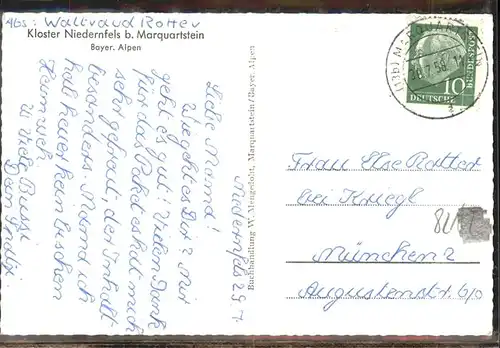 Abs: Waltraud Rotter
Kloster Niedernfels b. Marquartstein
Bayer. Alpen
Niedernfels 29.7.
Liebe Mama!
Wie geht es Dir? Mir
geht es gut! Vielen Dank
für das Paket es hat mich
sehr gefreut, der Inhalt
besonders. Mama ich
hab heuer kein bischen
Heimweh.
Viele Bussi
Dein
Buchhandlung W. Morgenroth, Marquartstein/Bayer. Alpen
(13b) MARQUARTSTEIN
DEUTSCHE
BUNDESPOST
10
Frau Else Rotter
bei Kriegl
München 2
Augustenstr. 6/0